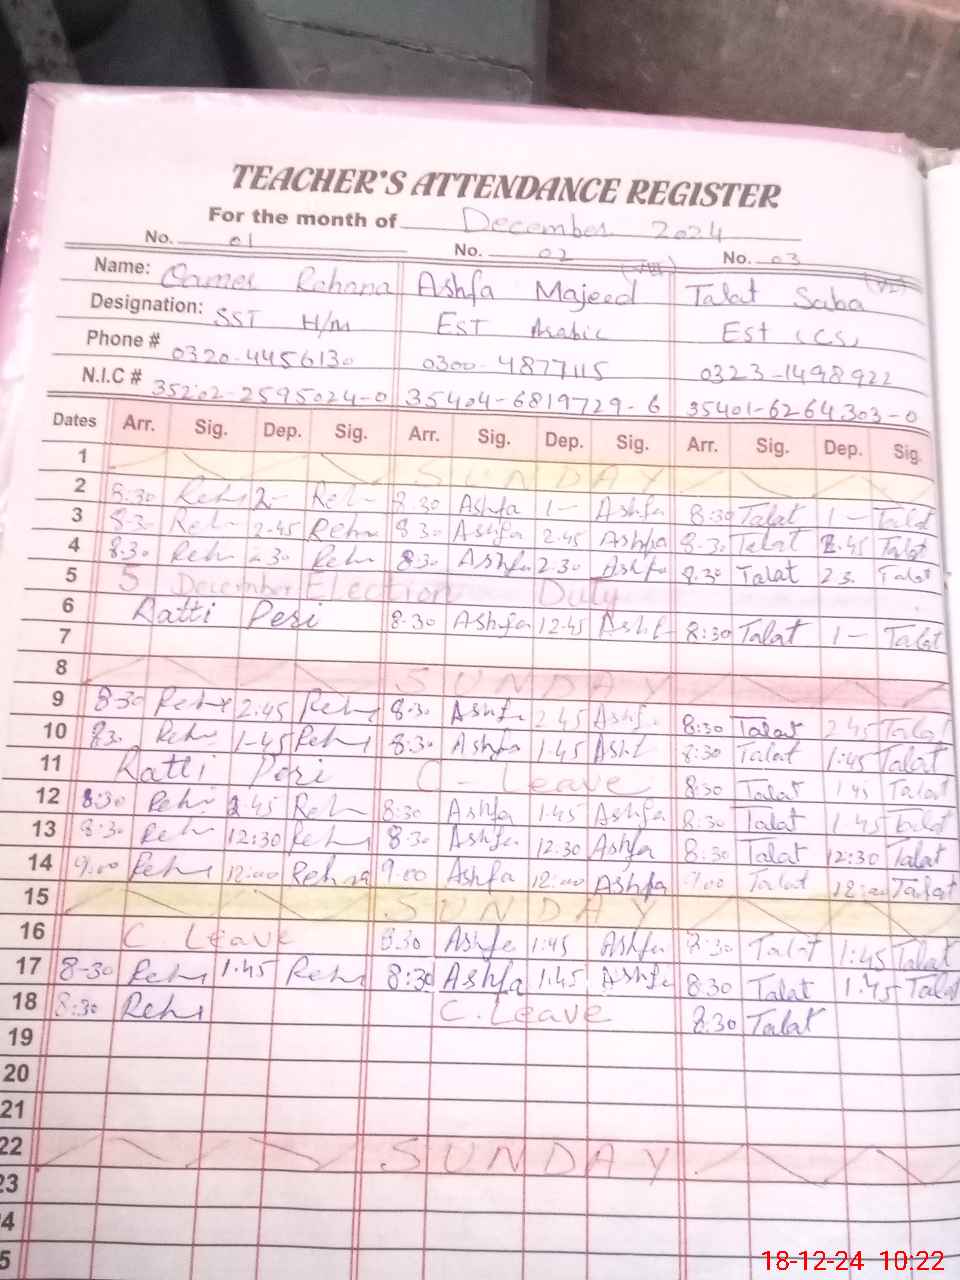 TEACHER'S ATTENDANCE REGISTER
For the month of December 2024
No. 01 No. 02 No. 03
Name: Qamer Rehana Ashfa Majeed (VIII) Talat Saba
Designation: SST H/m Est Arabic Est (CS)
Phone # 0320-4456130 0300-4877115 0323-1498922
N.I.C # 35202-2595024-0 35404-6819729-6 35401-6264303-0
Dates Arr. Sig. Dep. Sig. Arr. Sig. Dep. Sig. Arr. Sig. Dep. Sig.
1 SUNDAY
2 8:30 Reh 2- Reh 8.30 Ashfa 1- Ashfa 8:30 Talat 1- Talat
3 8-3 Reh 2.45 Rehn 8.30 Ashfa 2.45 Ashfa 8-30 Talat 2.45 Talat
4 8.30 Reh 2.30 Reh 8.30 Ashfa 2.30 Ashfa 8.30 Talat 23. Talat
5 5 December Election Duty
6 Ratti Peri 8.30 Ashfa 12.45 Ashf 8:30 Talat 1- Talat
7
8 SUNDAY
9 8-30 Reh 2.45 Reh 8.30 Ashfa 2.45 Ashfa 8:30 Talat 2.45 Talat
10 83. Reh 1-45 Reh 8.30 Ashfa 1.45 Ashf 8:30 Talat 1:45 Talat
11 Ratti Peri C-Leave 8:30 Talat 1 45 Talat
12 8:30 Reh 2.45 Reh 8:30 Ashfa 1.45 Ashfa 8:30 Talat 1.45 Talat
13 8:30 Reh 12:30 Reh 8.30 Ashfa 12:30 Ashfa 8:30 Talat 12:30 Talat
14 9:00 Reh 12:00 Rehna 9.00 Ashfa 12:00 Ashfa 9.00 Talat 12:00 Talat
15 SUNDAY
16 C. Leave 8.30 Ashfa 1:45 Ashfa 8:30 Talat 1:45 Talat
17 8-30 Reh 1.45 Reh 8:30 Ashfa 1.45 Ashfa 8:30 Talat 1:45 Talat
18 8:30 Reh C.Leave 8.30 Talat
19
20
21
22 SUNDAY
23
4
5
18-12-24 10:22